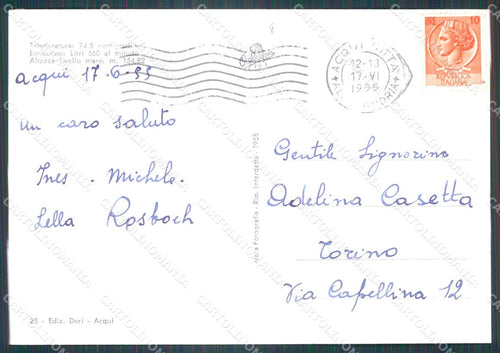 Temperatura: 74.5 centigradi
Emissione: Litri 560 al minuto
Altezza livello mare: m. 154.82
acqui 17.6.55
un caro saluto
Ines - Michele -
Lella Rosboch
25 - Ediz. Dori - Acqui
Vera Fotografia - Rip. Interdetta - 1955
ACQUI
12-13
17.VI
1955
10
REPUBBLICA
ITALIANA
Gentile Signorina
Adelina Casetta
Torino
Via Capellina 12
CARTOLINOMANIA